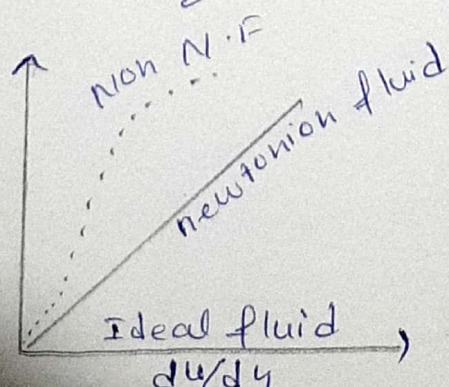 Non N.F
newtonion fluid
Ideal fluid
du/dy